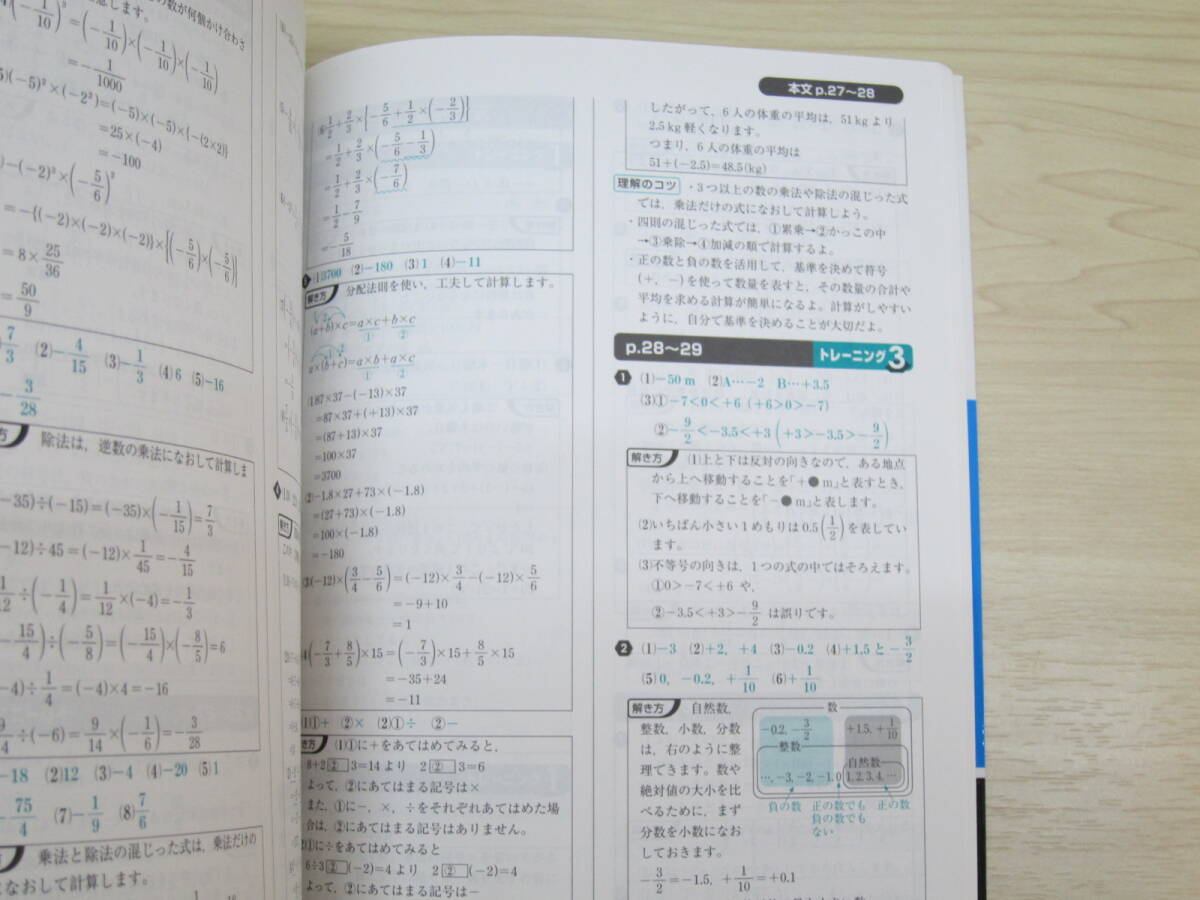 の数が何個かけ合わさ
意します。
(−1/10)³=(−1/10)×(−1/10)×(−1/10)
=−1/1000
(−5)²×(−2²)=(−5)×(−5)×{−(2×2)}
=25×(−4)
=−100
−(−2)³×(−5/6)²
=−{(−2)×(−2)×(−2)}×{(−5/6)×(−5/6)}
=8×25/36
=50/9
7/3 (2)−4/15 (3)−1/3 (4)6 (5)−16
−3/28
方 除法は,逆数の乗法になおして計算しま
−35)÷(−15)=(−35)×(−1/15)=7/3
−12)÷45=(−12)×1/45=−4/15
÷(−1/4)=1/12×(−4)=−1/3
−15/4)÷(−5/8)=(−15/4)×(−8/5)=6
−4)÷1/4=(−4)×4=−16
÷(−6)=9/14×(−1/6)=−3/28
−18 (2)12 (3)−4 (4)−20 (5)1
75/4 (7)−1/9 (8)7/6
方 乗法と除法の混じった式は,乗法だけの
なおして計算します。
本文 p.27〜28
(6)1/2+2/3×{−5/6+1/2×(−2/3)}
=1/2+2/3×(−5/6−1/3)
=1/2+2/3×(−7/6)
=1/2−7/9
=−5/18
(1)3700 (2)−180 (3)1 (4)−11
解き方 分配法則を使い,工夫して計算します。
(a+b)×c=a×c+b×c
① ②
a×(b+c)=a×b+a×c
① ②
(1)87×37−(−13)×37
=87×37+(+13)×37
=(87+13)×37
=100×37
=3700
(2)−1.8×27+73×(−1.8)
=(27+73)×(−1.8)
=100×(−1.8)
=−180
(3)(−12)×(3/4−5/6)=(−12)×3/4−(−12)×5/6
=−9+10
=1
(−7/3+8/5)×15=(−7/3)×15+8/5×15
=−35+24
=−11
(1)①+ ②× (2)①÷ ②−
き方 (1)①に+をあてはめてみると,
8+2②3=14より 2②3=6
よって,②にあてはまる記号は×
また,①に−,×,÷をそれぞれあてはめた場
合は,②にあてはまる記号はありません。
①に÷をあてはめてみると
6÷3②(−2)=4より 2②(−2)=4
よって,②にあてはまる記号は−
したがって,6人の体重の平均は,51kgより
2.5kg軽くなります。
つまり,6人の体重の平均は
51+(−2.5)=48.5(kg)
理解のコツ ・3つ以上の数の乗法や除法の混じった式
では,乗法だけの式になおして計算しよう。
・四則の混じった式では,①累乗→②かっこの中
→③乗除→④加減の順で計算するよ。
・正の数と負の数を活用して,基準を決めて符号
(+,−)を使って数量を表すと,その数量の合計や
平均を求める計算が簡単になるよ。計算がしやすい
ように,自分で基準を決めることが大切だよ。
p.28〜29 トレーニング3
1 (1)−50 m (2)A…−2 B…+3.5
(3)①−7<0<+6 (+6>0>−7)
②−9/2<−3.5<+3 (+3>−3.5>−9/2)
解き方 (1)上と下は反対の向きなので,ある地点
から上へ移動することを「+●m」と表すとき,
下へ移動することを「−●m」と表します。
(2)いちばん小さい1めもりは0.5(1/2)を表してい
ます。
(3)不等号の向きは,1つの式の中ではそろえます。
①0>−7<+6 や,
②−3.5<+3>−9/2 は誤りです。
2 (1)−3 (2)+2, +4 (3)−0.2 (4)+1.5と−3/2
(5)0, −0.2, +1/10 (6)+1/10
解き方 自然数,
整数,小数,分数
は,右のように整
理できます。数や
絶対値の大小を比
べるために,まず
分数を小数になお
しておきます。
−3/2=−1.5, +1/10=+0.1
数
−0.2, −3/2
+1.5, +1/10
整数
自然数
…, −3, −2, −1, 0
1, 2, 3, 4, …
負の数
正の数でも
負の数でも
ない
正の数